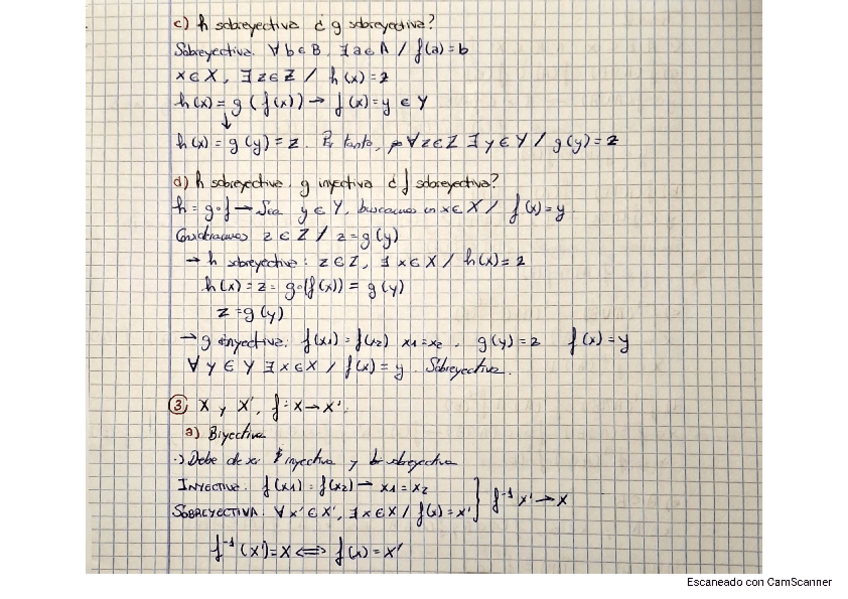 c) h sobreyectiva ¿ g sobreyectiva?
Sobreyectiva. ∀ b ∈ B, ∃ a ∈ A / f(a) = b
x ∈ X, ∃ z ∈ Z / h(x) = z
h(x) = g(f(x)) → f(x) = y ∈ Y
↓
h(x) = g(y) = z. Por tanto, ∀ z ∈ Z ∃ y ∈ Y / g(y) = z
d) h sobreyectiva, g inyectiva ¿ f sobreyectiva?
h = g∘f → Sea y ∈ Y, buscamos un x ∈ X / f(x) = y.
Consideramos z ∈ Z / z = g(y)
→ h sobreyectiva: z ∈ Z, ∃ x ∈ X / h(x) = z
h(x) = z = g∘(f(x)) = g(y)
z = g(y)
→ g inyectiva: f(x1) = f(x2) x1 = x2. g(y) = z f(x) = y
∀ y ∈ Y ∃ x ∈ X / f(x) = y. Sobreyectiva.
③ X y X', f: X → X'.
a) Biyectiva
·) Debe de ser inyectiva y sobreyectiva
INYECTIVA. f(x1) = f(x2) → x1 = x2
SOBREYECTIVA. ∀ x' ∈ X', ∃ x ∈ X / f(x) = x' } f⁻¹ X' → X
f⁻¹(x') = X ⟺ f(x) = X'
Escaneado con CamScanner